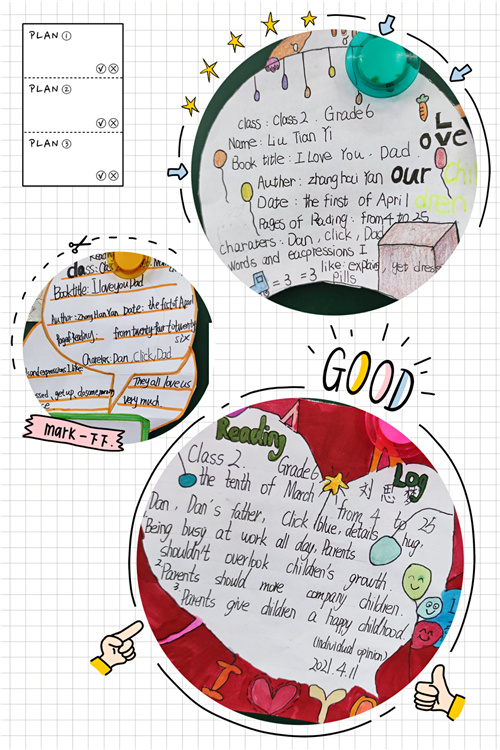 PLAN ①
PLAN ②
PLAN ③
Class: Class 2. Grade 6
Name: Liu Tian Yi
Book title: I Love You. Dad.
Auther: zhang hai Yan
Date: the first of April
Pages of Rading: from 4 to 25
Charaters: Dan, click, Dad
words and eacpressions I
like: expain, yet dress
= 3 = 3 Pills
LOVE
our
chil
dren
Reading
class: Clas
Book title: I love you Dad
Auther: Zhang Hai Yan Date: the fist of April
Pages Reading: from twenty-four to twenty
six
Charaters: Dan, Click, Dad
and expressions I like
They all love us
ssed, get up, do some
very much
mark-下下.
GOOD
Reading
Log
Class 2. Grade 6 刘思
the tenth of March from 4 to 25
Dan, Dan's father, Click blue, details hug,
Being busy at work all day, Parents
shouldn't overlook children's growth
2. Parents should more company children.
3. Parents give children a happy childhood.
(individual opinion)
2021.4.11
I Y O